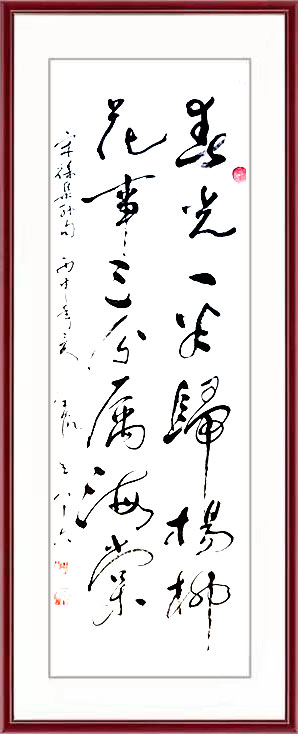 春光一半歸楊柳
花事三分屬海棠
宋徐集孫句 丙申年夏